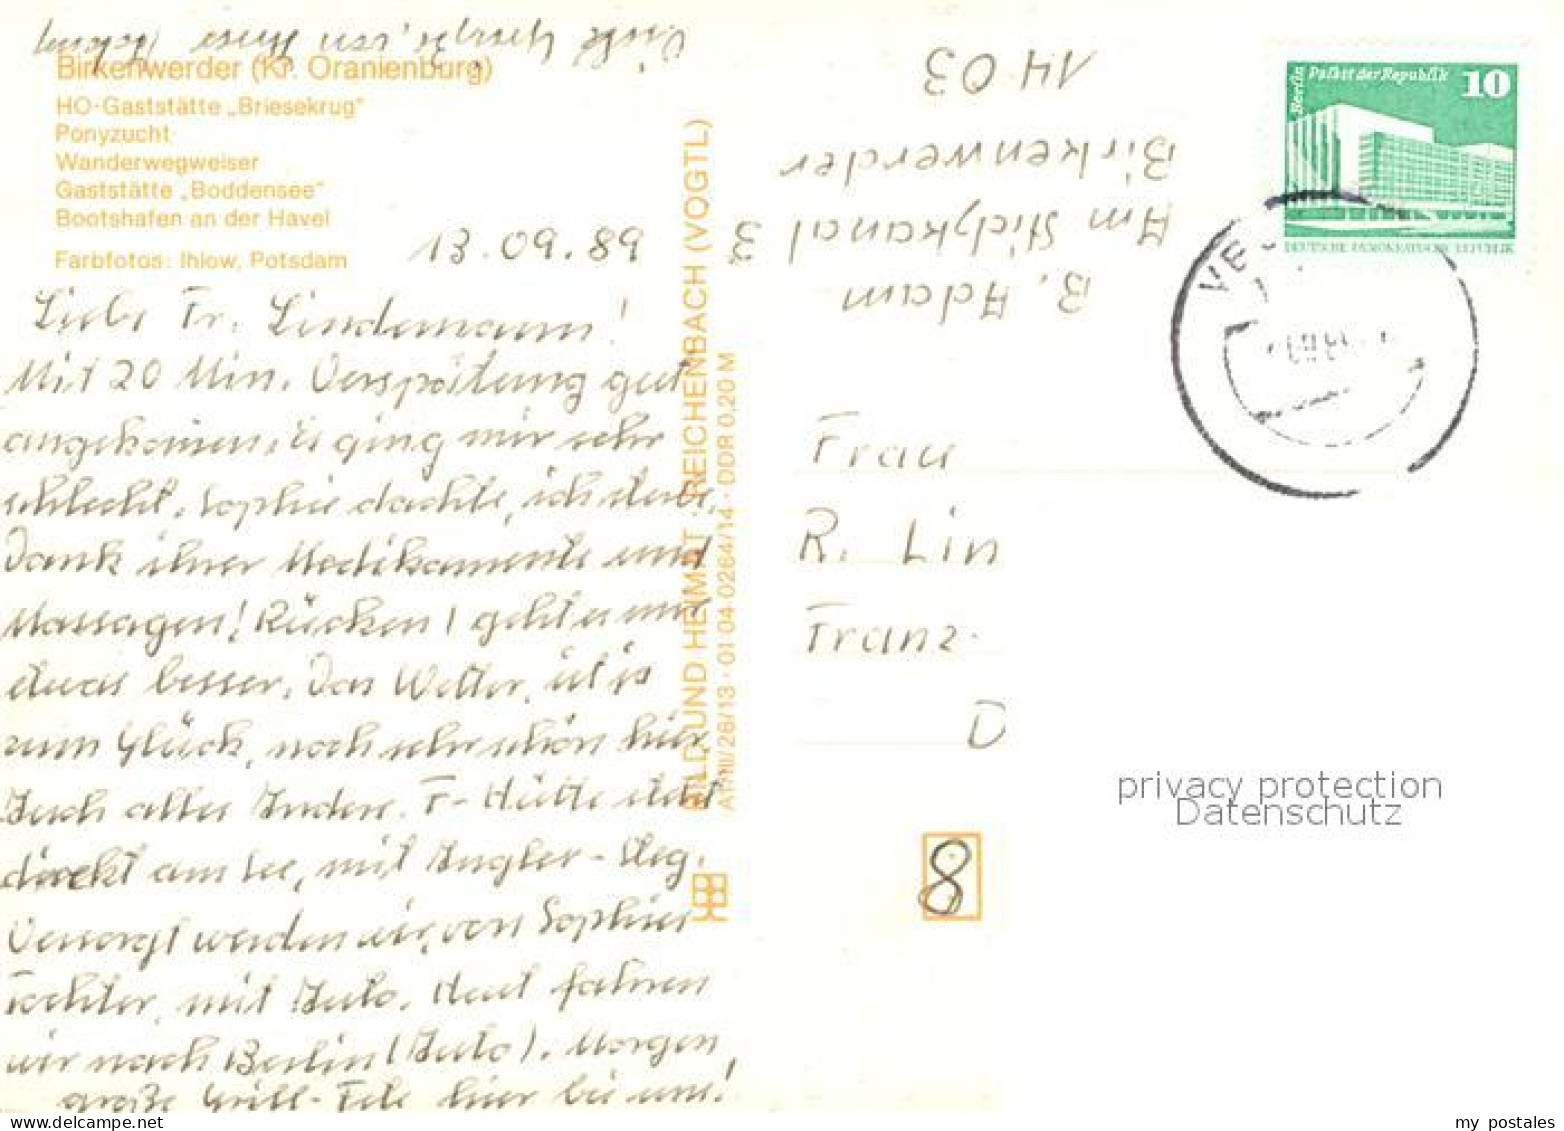 Birkenwerder (Kr. Oranienburg)
HO-Gaststätte „Briesekrug"
Ponyzucht
Wanderwegweiser
Gaststätte „Boddensee"
Bootshafen an der Havel
Farbfotos: Ihlow, Potsdam
13.09.89
Liebe Fr. Lindemann!
Mit 20 Min. Verspätung gut
angekommen, es ging mir sehr
schlecht. Sophie dachte, ich sterbe,
Dank ihrer Medikamente und
Massagen! Rücken! geht es mir
etwas besser. Das Wetter, ist ja
zum Glück, noch sehr schön hier
Auch alles Andere. F-Hütte steht
direkt am See, mit Angler-Steg.
Versorgt werden wir, von Sophies
Tochter, mit Auto. Heut fahren
wir nach Berlin (Auto). Morgen
große Grill-Fete hier bei uns!
Viele Grüße, von Ihrer
BILD UND HEIMAT REICHENBACH (VOGTL)
01 04 0264/14 · DDR 0,20 M
B. Adam
Am Stichkanal 3
Birkenwerder
1403
Berlin Palast der Republik
10
DEUTSCHE DEMOKRATISCHE REPUBLIK
VE
Frau
R. Lin
Franz.
D
8
privacy protection
Datenschutz
my postales